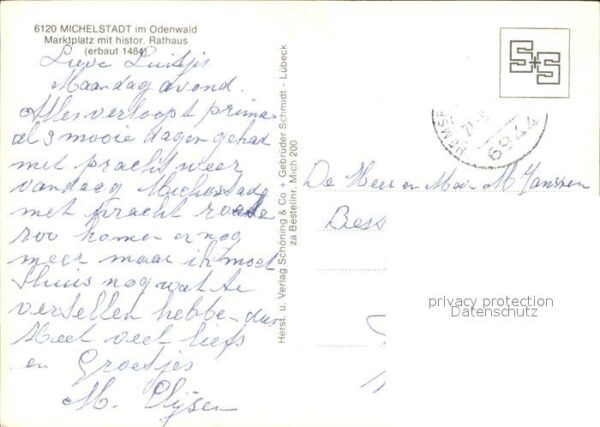 6120 MICHELSTADT im Odenwald
Marktplatz mit histor. Rathaus
(erbaut 1484)
Lieve Luitjes
Maandag avond.
Alles verloopt prima
al 3 mooie dagen gehad
met pracht weer
vandaag Michelstadt
met pracht
zoo komen er nog
meer maar ik moet
thuis nog wat te
vertellen hebbe. dus
Heel veel liefs
en Groetjes
M.
Herst. u. Verlag Schöning & Co + Gebrüder Schmidt - Lübeck
za Bestellnr. Mich 200
S+S
HEMSB
21
6944
De Heer en Mev. M Janssen
Bess
privacy protection
Datenschutz